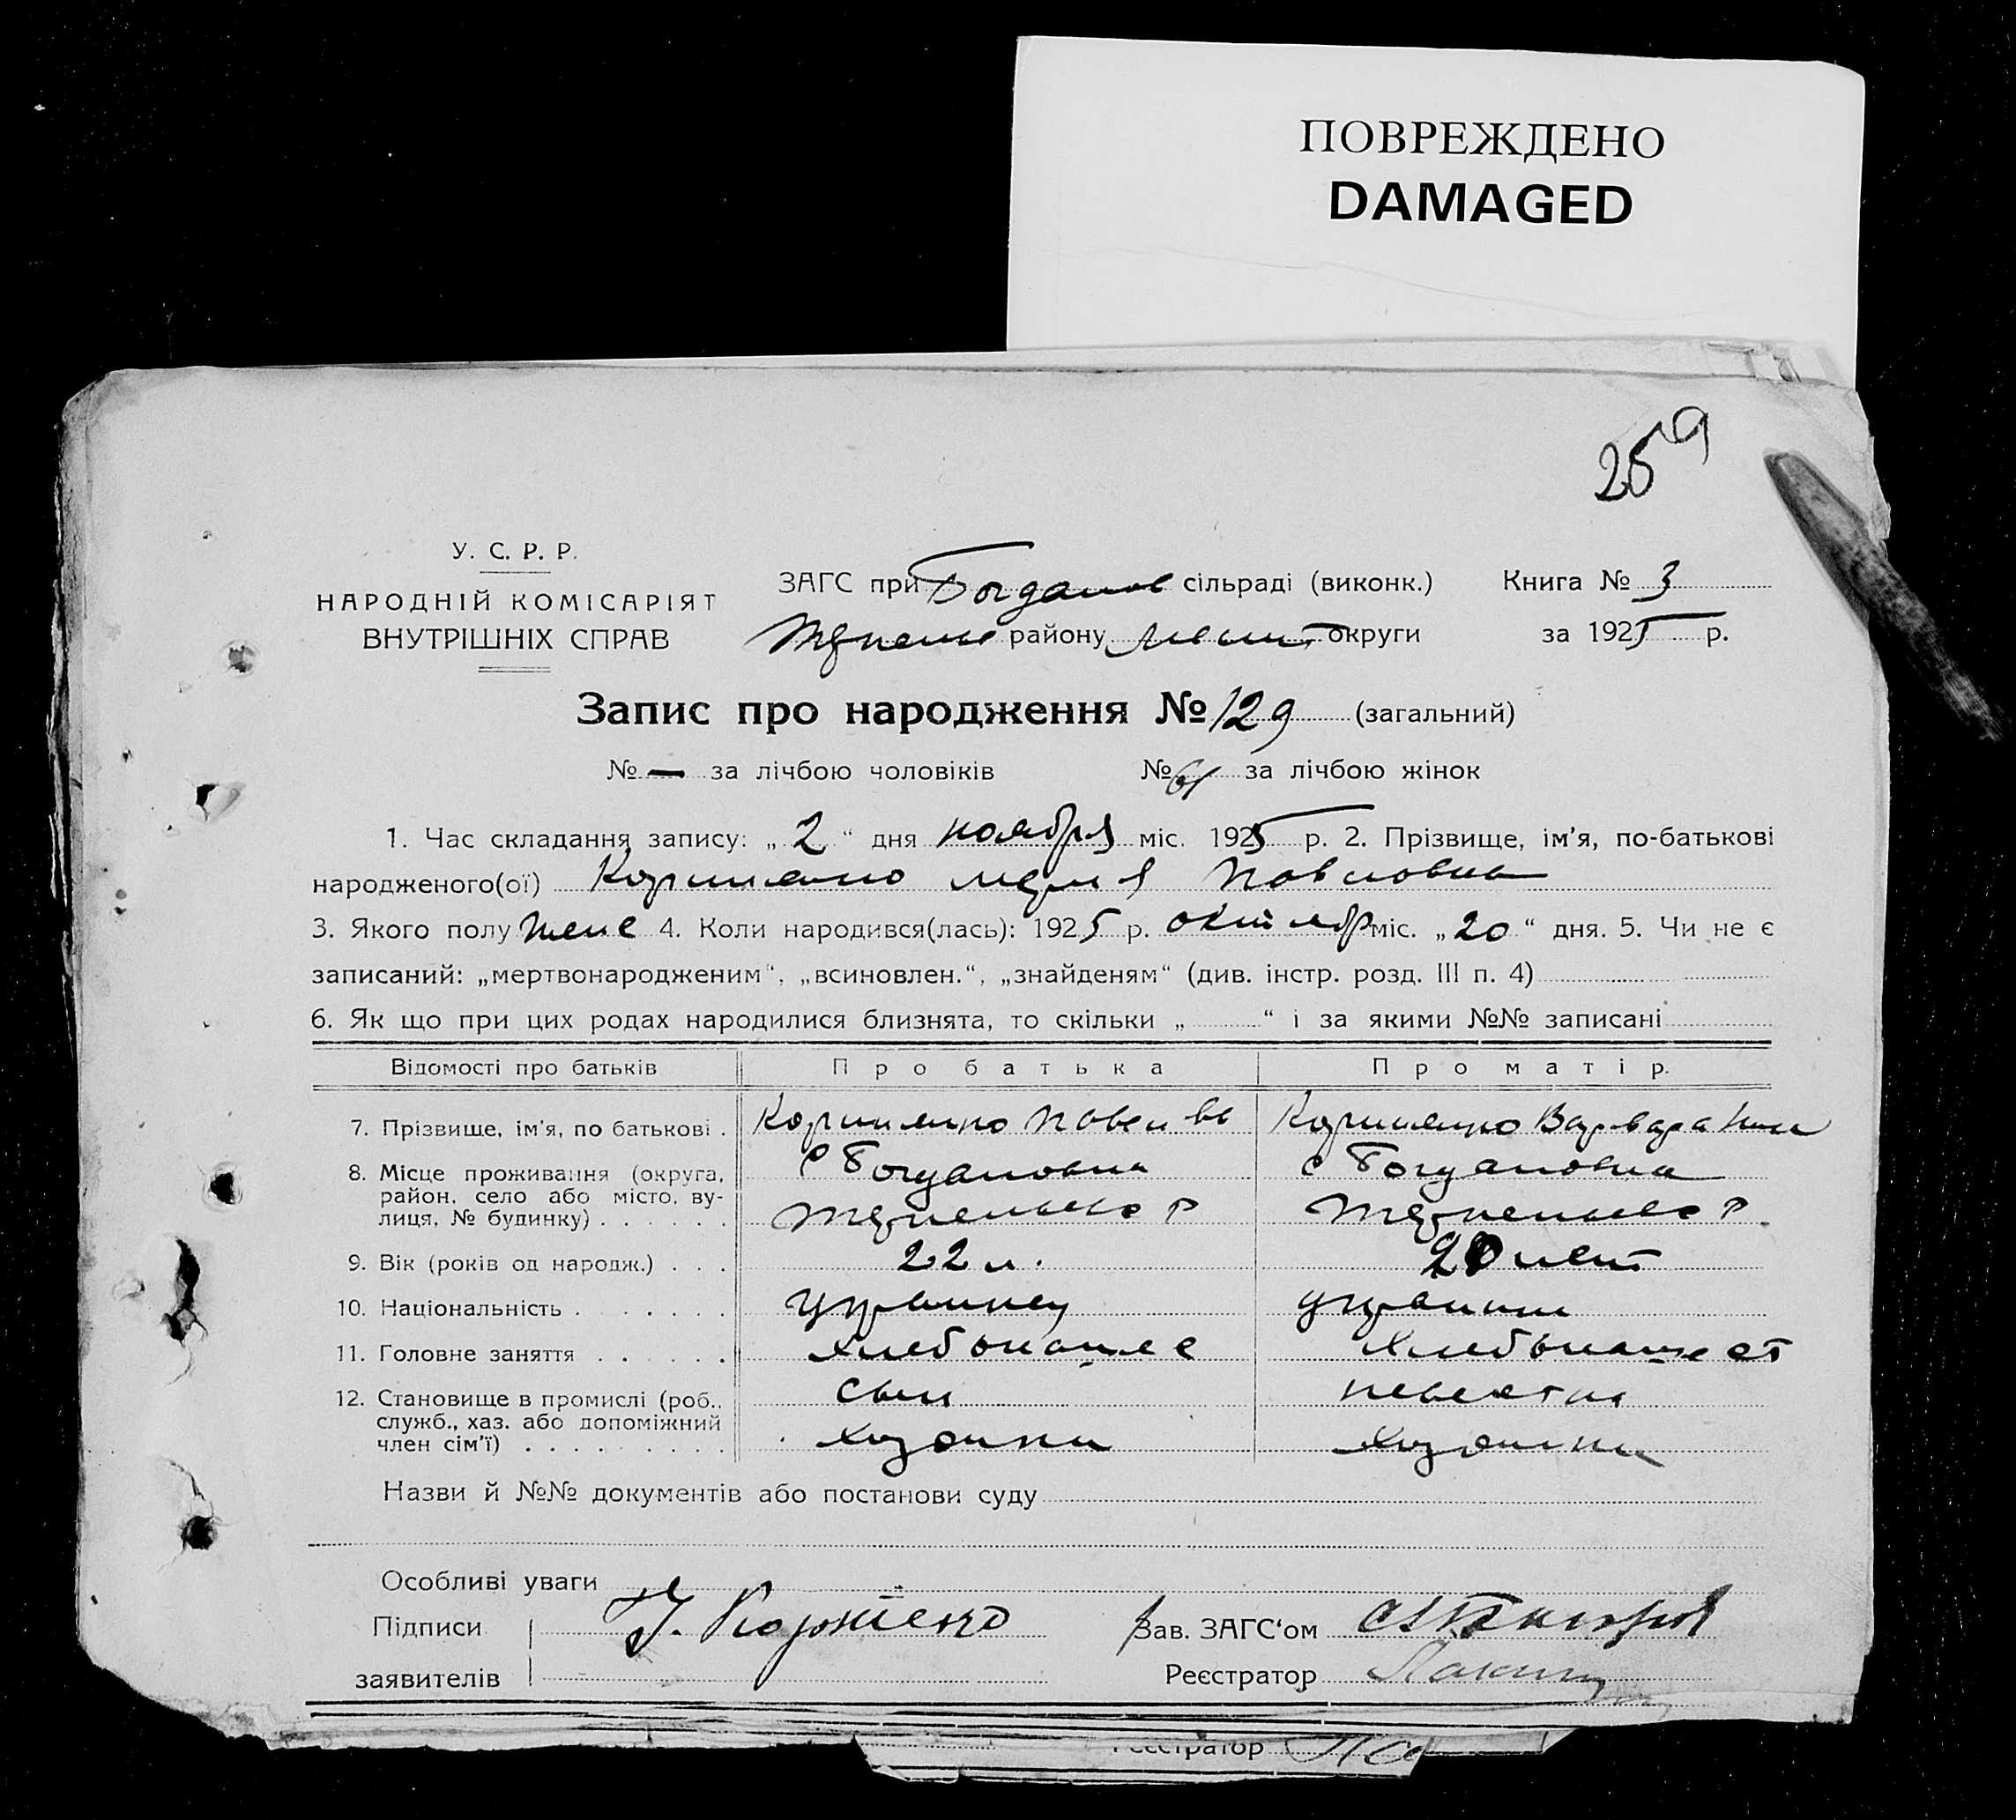 ПОВРЕЖДЕНО
DAMAGED
259
У. С. Р. Р.
НАРОДНІЙ КОМІСАРІЯТ
ВНУТРІШНІХ СПРАВ
ЗАГС при Богданов сільраді (виконк.) Книга № 3
району округи за 1925 р.
Запис про народження № 129 (загальний)
№ — за лічбою чоловіків № 61 за лічбою жінок
1. Час складання запису: „ 2 “ дня ноября міс. 1925 р. 2. Прізвище, ім’я, по-батькові
народженого(ої) Павловна
3. Якого полу жене 4. Коли народився(лась): 1925 р. октябр міс. „ 20 “ дня. 5. Чи не є
записаний: „мертвонародженим“, „всиновлен.“, „знайденям“ (див. інстр. розд. III п. 4)
6. Як що при цих родах народилися близнята, то скільки „ “ і за якими №№ записані
Відомості про батьків Про батька Про матір.
7. Прізвище, ім’я, по батькові . Варвара
8. Місце проживання (округа, с Богдановка с Богдановка
район, село або місто, ву-
лиця, № будинку) . . . . . .
9. Вік (років од народж.) . . . 22 л. 20 лет
10. Національність . . . . . . . украинец украин
11. Головне заняття . . . . . . хлебопаше хлебопаше ст
12. Становище в промислі (роб., сын невестка
служб., хаз. або допоміжний
член сім’ї) . . . . . . . . . хозяина хозяина
Назви й №№ документів або постанови суду
Особливі уваги
Підписи Зав. ЗАГС‘ом
заявителів Реєстратор
Реєстратор